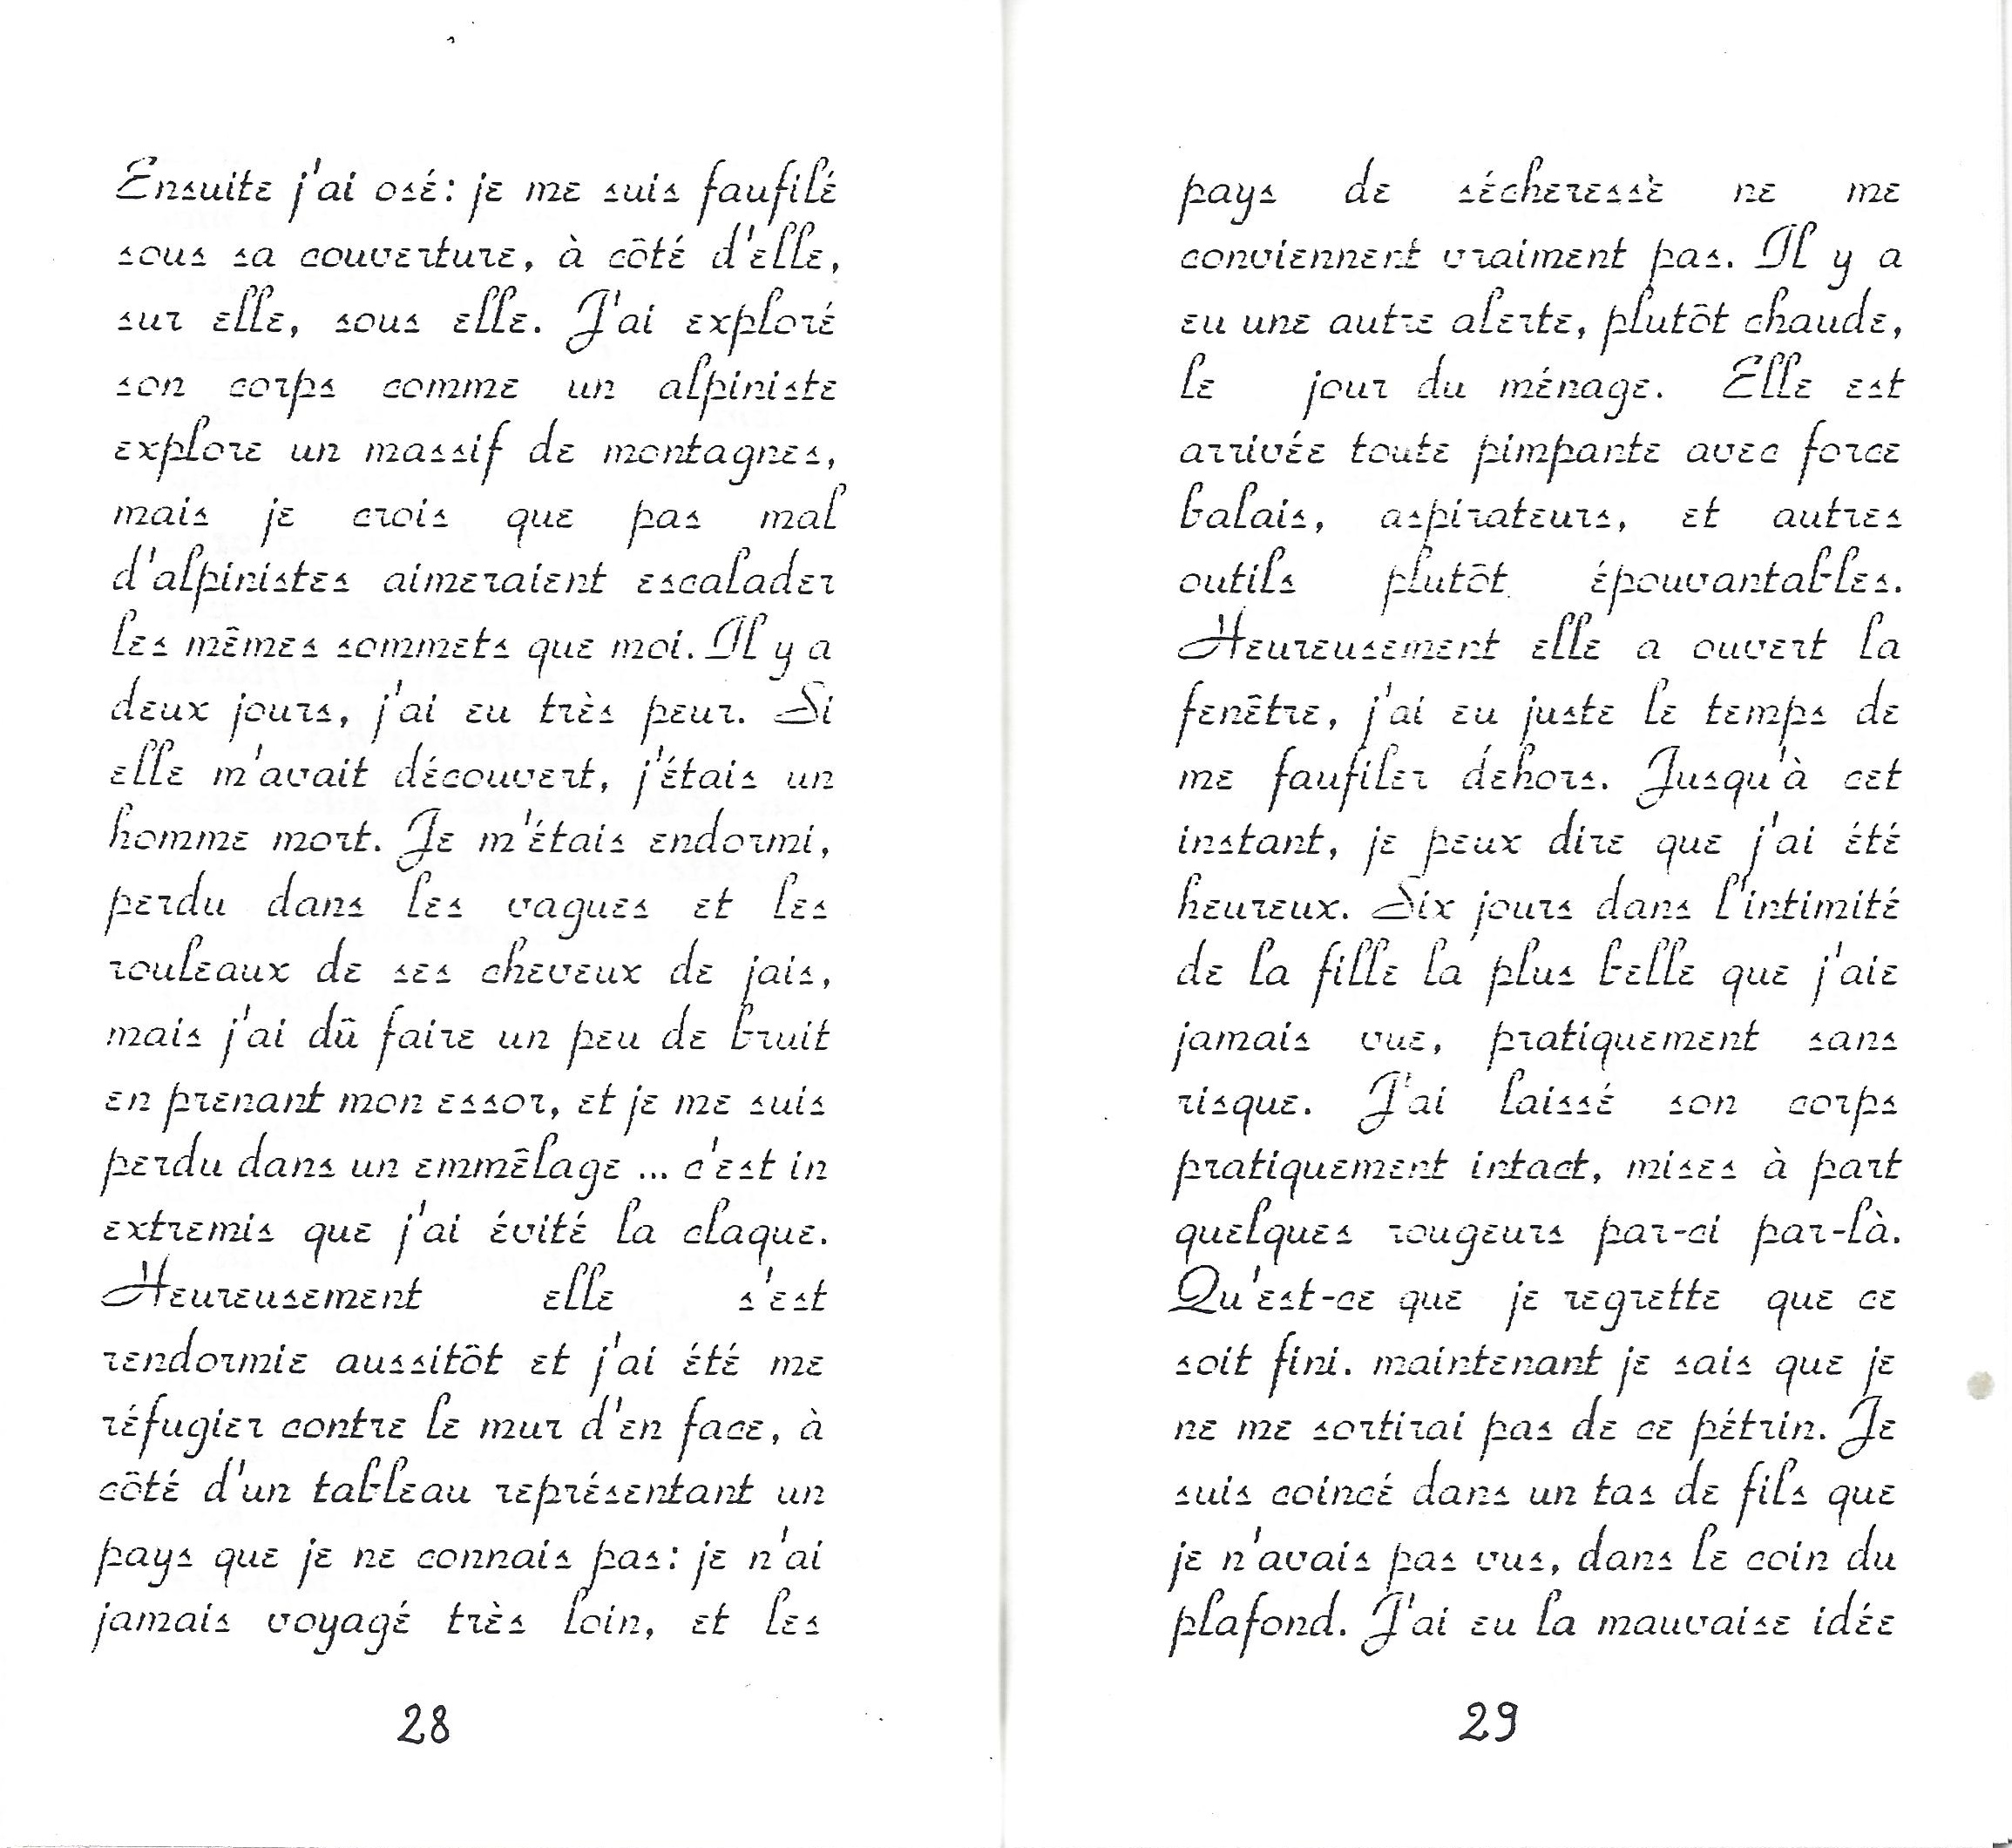 Ensuite j'ai osé: je me suis faufilé
sous sa couverture, à côté d'elle,
sur elle, sous elle. J'ai exploré
son corps comme un alpiniste
explore un massif de montagnes,
mais je crois que pas mal
d'alpinistes aimeraient escalader
les mêmes sommets que moi. Il y a
deux jours, j'ai eu très peur. Si
elle m'avait découvert, j'étais un
homme mort. Je m'étais endormi,
perdu dans les vagues et les
rouleaux de ses cheveux de jais,
mais j'ai dû faire un peu de bruit
en prenant mon essor, et je me suis
perdu dans un emmêlage ... c'est in
extremis que j'ai évité la claque.
Heureusement elle s'est
rendormie aussitôt et j'ai été me
réfugier contre le mur d'en face, à
côté d'un tableau représentant un
pays que je ne connais pas: je n'ai
jamais voyagé très loin, et les
28
pays de sécheresse ne me
conviennent vraiment pas. Il y a
eu une autre alerte, plutôt chaude,
le jour du ménage. Elle est
arrivée toute pimpante avec force
balais, aspirateurs, et autres
outils plutôt épouvantables.
Heureusement elle a ouvert la
fenêtre, j'ai eu juste le temps de
me faufiler dehors. Jusqu'à cet
instant, je peux dire que j'ai été
heureux. Six jours dans l'intimité
de la fille la plus belle que j'aie
jamais vue, pratiquement sans
risque. J'ai laissé son corps
pratiquement intact, mises à part
quelques rougeurs par-ci par-là.
Qu'est-ce que je regrette que ce
soit fini. maintenant je sais que je
ne me sortirai pas de ce pétrin. Je
suis coincé dans un tas de fils que
je n'avais pas vus, dans le coin du
plafond. J'ai eu la mauvaise idée
29